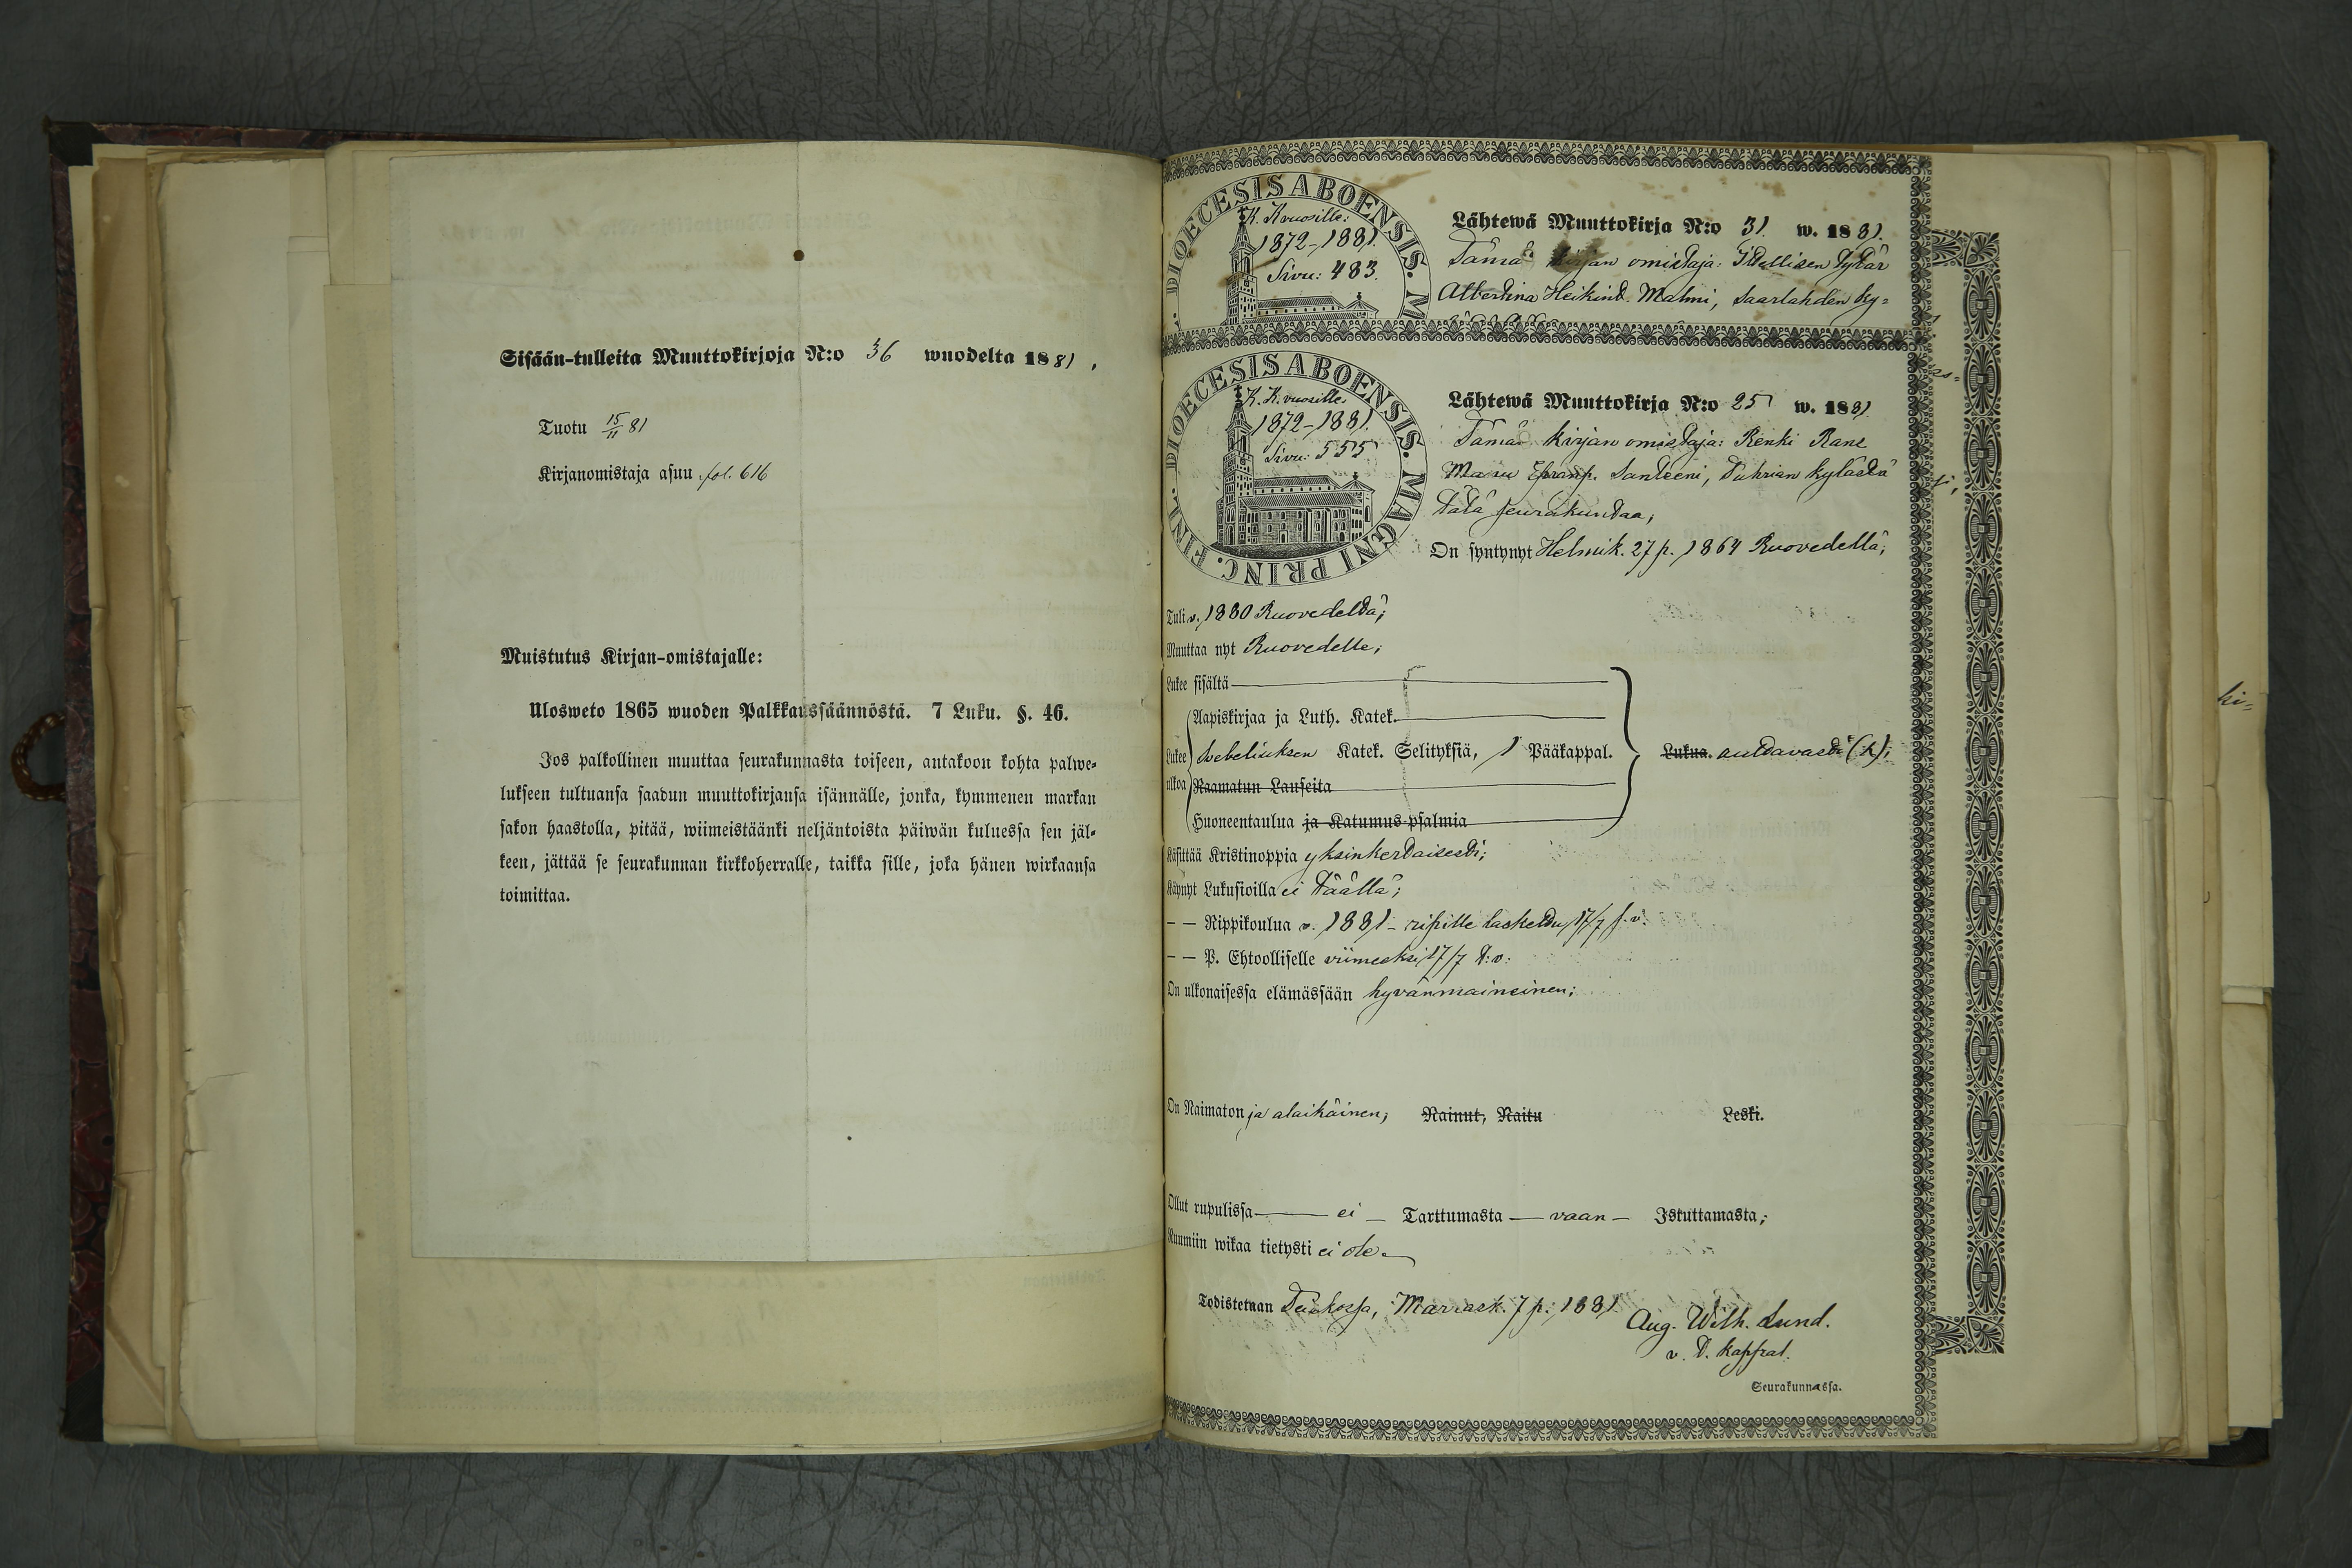 Sisään-tulleita Muuttokirjoja N:o 36 wuodelta 1881,
Tuotu 15/11 81
Kirjanomistaja asuu fol. 616
Muistutus Kirjan-omistajalle:
Ulosweto 1865 wuoden Palkkaussäännöstä. 7 Luku. §. 46.
Jos palkollinen muuttaa seurakunnasta toiseen, antakoon kohta palwe-
lukseen tultuansa saadun muuttokirjansa isännälle, jonka, kymmenen markan
sakon haastolla, pitää, wiimeistäänki neljäntoista päiwän kuluessa sen jäl-
keen, jättää se seurakunnan kirkkoherralle, taikka sille, joka hänen wirkaansa
toimittaa.
DIOECESIS ABOENSIS. M
K. K vuosille:
1872-1881.
Sivu: 483.
Lähtewä Muuttokirja N:o 31. w. 1881.
Tämän kirjan omistaja: Itsellisen tytär
Albertina Heikint. Malmi, Saarlahden ky-
DIOECESIS ABOENSIS. MAGNI PRINC. FINL.
K. K. vuosille
1872-1881.
Sivu: 555
Lähtewä Muuttokirja N:o 25 w. 1881
Tämän kirjan omistaja: Renki Rans
Manu Efraimp. Santeeni, Puhrian kylästä
tätä seurakuntaa;
On syntynyt Helmik. 27 p. 1864 Ruovedellä;
Tuli v. 1880 Ruovedeltä;
Muuttaa nyt Ruovedelle;
Lukee sisältä
Aapiskirjaa ja Luth. Katek.
Lukee ulkoa Svebeliuksen Katek. Selityksiä, 1 Pääkappal. Lukua. auttavasti
Raamatun Lauseita
Huoneentaulua ja Katumus-psalmia
Käsittää Kristinoppia yksinkertaisesti;
Käynyt Lukusioilla ei täällä;
— — Rippikoulua v. 1881 - ripille laskettu 17/7 s. v.
— — P. Ehtoolliselle viimeksi 17/7 t: v:
On ulkonaisessa elämässään hyvänmaineinen;
On Naimaton ja alaikäinen; Nainut, Naitu Leski.
Ollut rupulissa — ei — Tarttumasta — vaan — Istuttamasta;
Ruumiin wikaa tietysti ei ole.
Todistetaan Teiskossa, Marrask. 7 p. 1881
Aug. Wilh. Lund.
v. t. kappal.
Seurakunnassa.